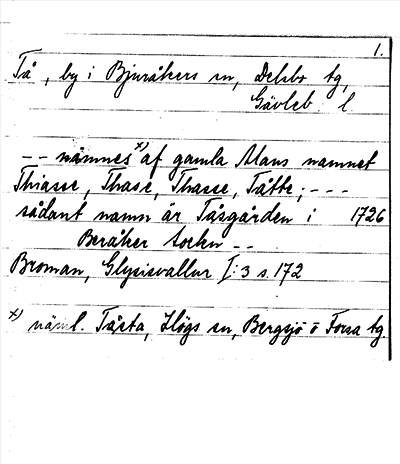 1.
Tå, by i Bjuråkers sn, Delsbo tg,
Gävleb. l
-- nämnes x) af gamla Mans namnet
Thiasse, Thase, Thasse, Tåtte; ---
sådant namn är Tåsgården i 1726
Beråker Sockn --
Broman, Glysisvallur I:3 s. 172
x) näml. Tåsta, Högs sn, Bergsjö o Forsa tg.